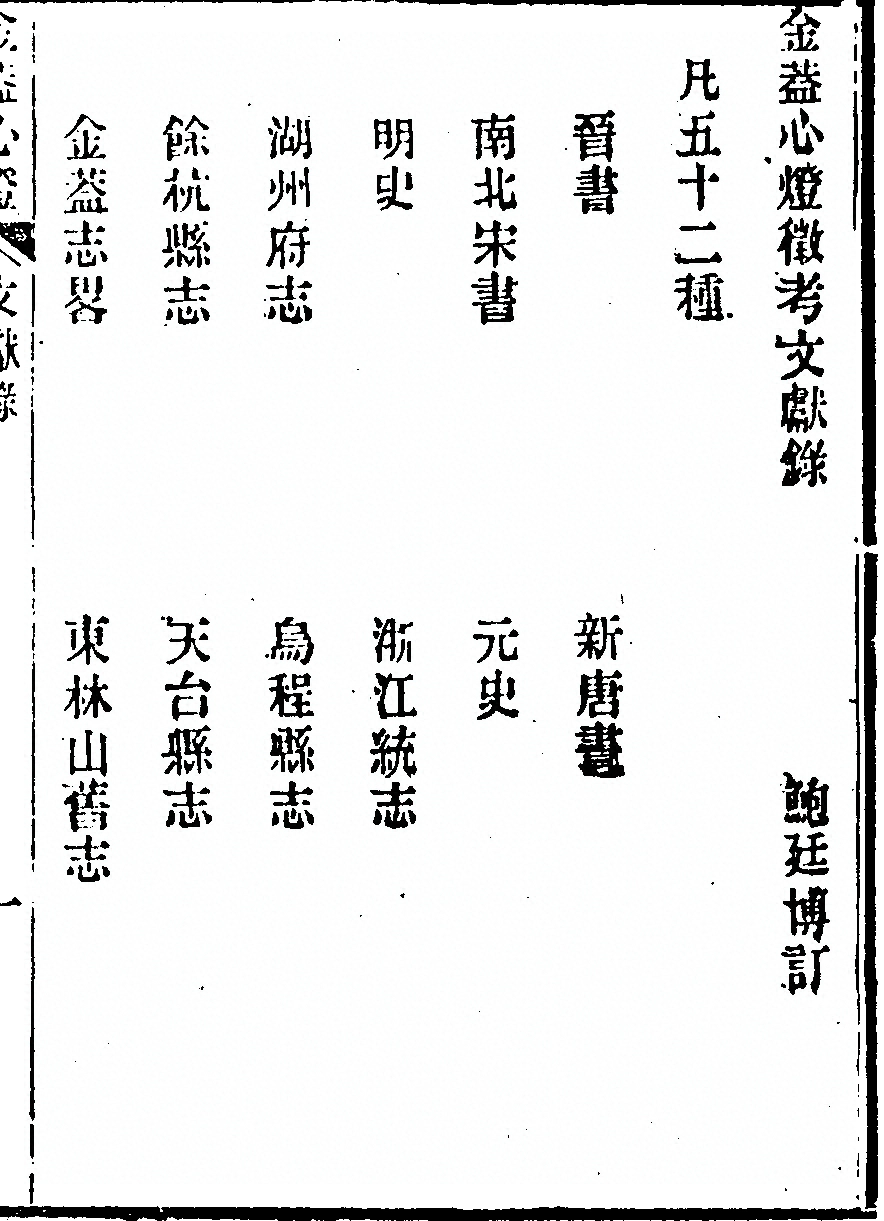 金葢心燈徵考文獻錄　鮑廷博訂
凡五十二種
晉書　新唐書
南北宋書　元史
明史　浙江統志
湖州府志　烏程縣志
餘杭縣志　天台縣志
金葢志畧　東林山舊志
金葢心燈　文獻錄　一